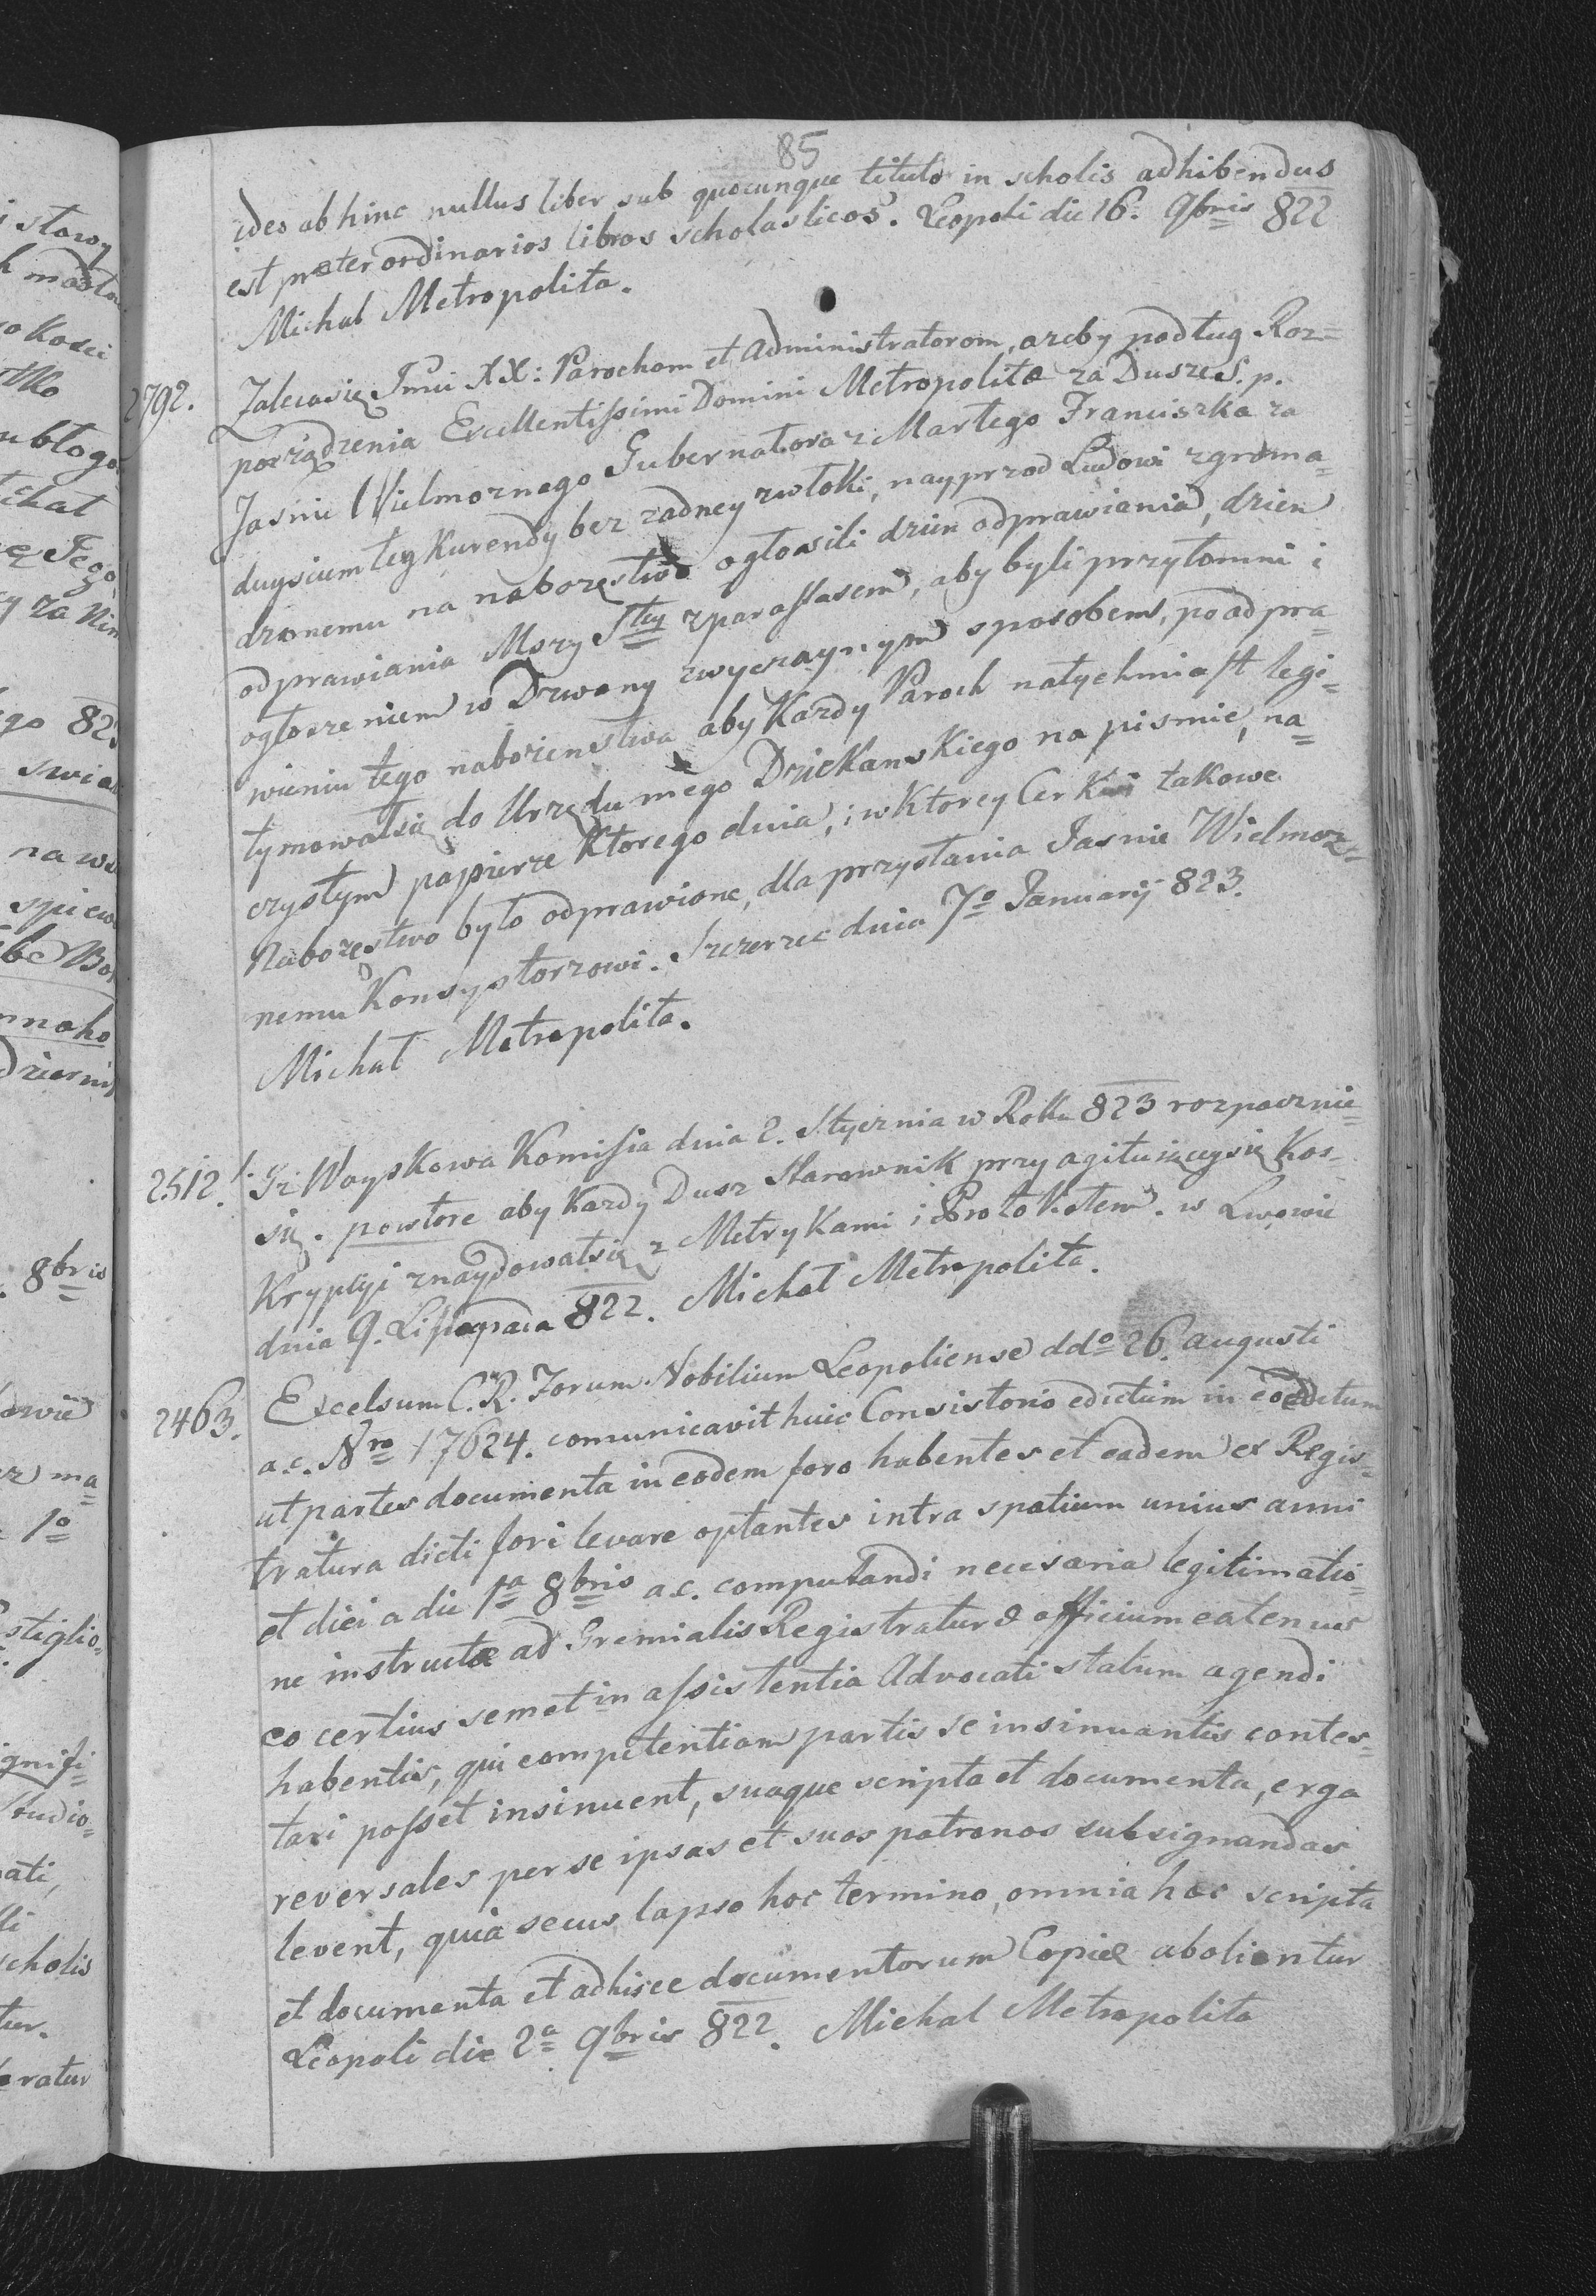 85
ideo abhinc nullus liber sub quocunque titulo in scholis adhibendus
est præter ordinarios libros scholasticos. Leopoli die 16. 9bris 822
Michal Metropolita.
2792. Zalecasię Imći XX: Parochom et Administratorom, azeby podług Roz=
porządzenia Excellentissimi Domini Metropolitæ za Dusze S. p.
Jasnie Wielmoznego Gubernatora zMarłego Franciszka za
duysciem tey Kurendy bez zadney zwłoki, nayprzod Ludowi zgroma=
dzonemu na nabozęstwo ogłosili dzien odprawiania, dzien
odprawiania Mszy Stey zparastasem, aby byli przytomni i
ogłoszeniem w Dzwony zwyczaynym sposobem, po odpra=
wieniu tego nabozenstwa aby Kazdy Paroch natychmiast legi=
tymowałsię do Urzędu mego Dziekanskiego na pismie, na=
czystym papierze Ktorego dnia, i wKtorey Cerkwi takowe
Nabozęstwo było odprawione, dla przysłania Jasnie Wielmoz=
nemu Konsystorzowi. Szczerzec dnia 7o Januarij 823.
Michał Metropolita.
2512. 1. Iż Woyskowa Komisia dnia 2. Stycznia w Roku 823 rozpocznie
się. powtore aby Kazdy Dusz Starownik przy agituiącysię Kos=
Krypcyi znaydowałsię z Metrykami i Protokołem. w Lwowie
dnia 9. Listopada 822. Michał Metropolita.
2463. Excelsum C. R. Forum Nobilium Leopoliense ddo 26. augusti
a.c. Nro 17624. comunicavit huic Consistorio edictum in eo editum
ut partes documenta in eodem foro habentes et eadem ex Regis=
tratura dicti fori levare optantes intra spatium unius anni
et diei a die 1a 8bris a.c. computandi necesaria legitimatio=
ne instructæ ad Gremialis Registraturæ officium eatenus
eo certius semet in assistentia Advocati statum agendi
habentis, qui competentiam partis se insinuantis contes=
tari posset insinuent, suaque scripta et documenta, erga
reversales per se ipsas et suos patronos subsignandas
levent, quia secus lapso hoc termino, omnia hæc scripta
et documenta et adhisce documentorum Copiæ abolientur
Leopoli die 2a 9bris 822. Michal Metropolita